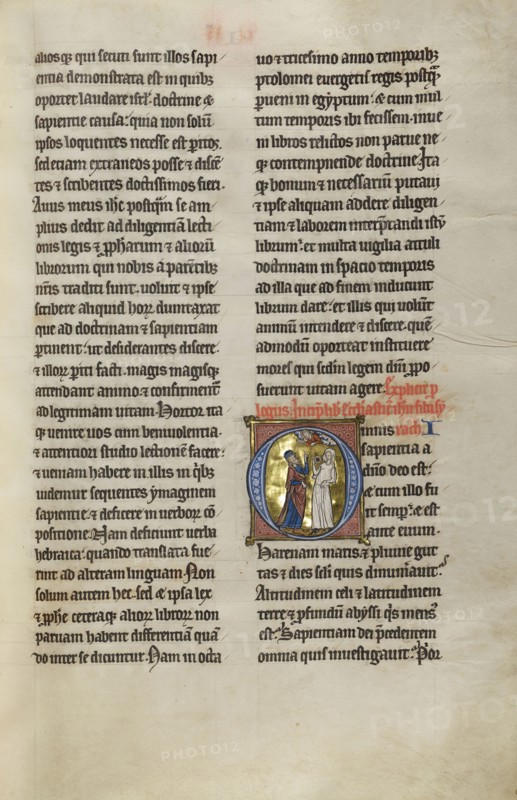 alios qȝ qui secuti sunt illos sapi
entia demonstrata est in quibȝ
oportet laudare isrl̄ doctrine ⁊
sapientie causa: quia non solū
ipsos loquentes necesse est peritos:
sed etiam extraneos posse ⁊ discē
tes ⁊ scribentes doctissimos fieri.
Auus meus ihc̄ postq̄m se am
plius dedit ad diligentiā lecti
onis legis ⁊ ꝓphetarum ⁊ alioꝝ
librorum qui nobis a parētibȝ
nr̄is traditi sunt. uoluit ⁊ ipse
scribere aliquid hoꝝ dumtaxat
que ad doctrinam ⁊ sapientiam
ꝑtinent: ut desiderantes discere.
⁊ illoꝝ ꝑiti facti. magis magisqȝ
attendant animo. ⁊ confirment̄
ad legitimam uitam. Hortor ita
qȝ uenire uos cum beniuolentia.
⁊ attentiori studio lectionē facere:
⁊ ueniam habere in illis in q̇bȝ
uidemur sequentes ymaginem
sapientie. ⁊ deficere in uerboꝝ cō
positione. Nam deficiunt uerba
hebraica: quando translata fue
rint ad alteram linguam. Non
solum autem hec. sed ⁊ ipsa lex
⁊ ꝓphe̅ ceteraqȝ alioꝝ libroꝝ non
paruam habent differentiā quā
do inter se dicuntur. Nam in octa
uo ⁊ tricesimo anno temporibȝ
ptolomei euergetis regis postq̄
ꝑueni in egyptum: ⁊ cum mul
tum temporis ibi fecissem. inue
ni libros relictos non parue ne
qȝ contempnende doctrine. Ita
qȝ bonum ⁊ necessariū putaui
⁊ ipse aliquam addere diligen
tiam ⁊ laborem interp̄tandi istū
librum: et multa uigilia attuli
doctrinam in spacio temporis
ad illa que ad finem inducunt
librum dare. et illis qui uolūt
animū intendere ⁊ discere. quē
admodū oporteat instituere
mores qui scdm̄ legem dn̄i ꝓpo
suerunt uitam agere. Explicit p
logus. Incip̄ lib̄ ecclesiastic̄ ihu filii sy
mnis rach I
sapientia a
dn̄o deo est:
⁊ cum illo fu
it semꝑ. ⁊ est
ante euum.
Harenam maris ⁊ pluuie gut
tas ⁊ dies scl̄i quis dinumerauit:
Altitudinem celi ⁊ latitudinem
terre ⁊ ꝓfundū abyssi q̇s mens̄
est: Sapientiam dei p̄cedentem
omnia quis inuestigauit: Por
PHOTO12